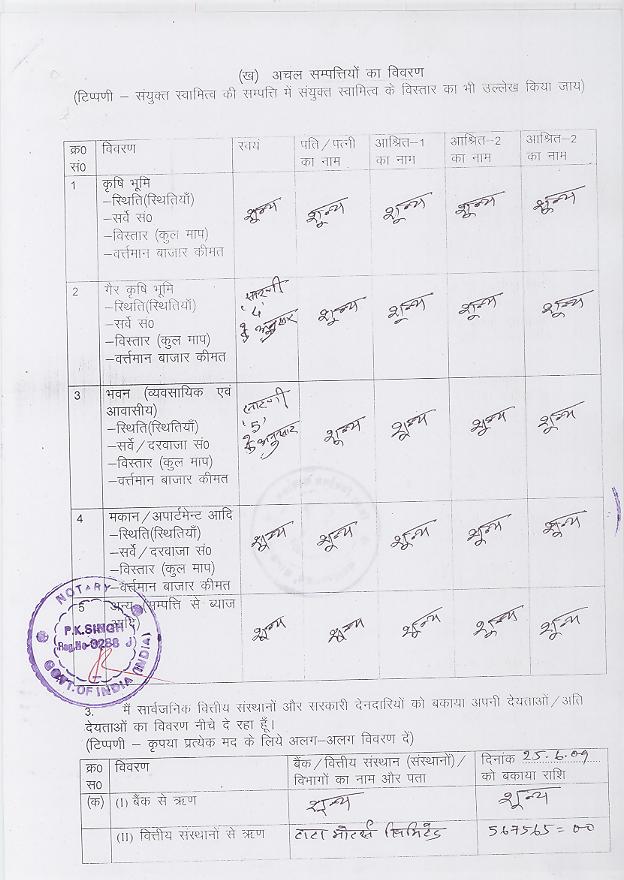 (ख) अचल सम्पत्तियों का विवरण
(टिप्पणी – संयुक्त स्वामित्व की सम्पत्ति में संयुक्त स्वामित्व के विस्तार का भी उल्लेख किया जाय)
क्र0 सं0 विवरण स्वयं पति/पत्नी का नाम आश्रित-1 का नाम आश्रित-2 का नाम आश्रित-2 का नाम
1 कृषि भूमि
–स्थिति(स्थितियाँ) शून्य शून्य शून्य शून्य शून्य
–सर्वे सं0
–विस्तार (कुल माप)
–वर्त्तमान बाजार कीमत
2 गैर कृषि भूमि सारणी
–स्थिति(स्थितियाँ) '4' शून्य शून्य शून्य शून्य
–सर्वे सं0 के अनुसार
–विस्तार (कुल माप)
–वर्त्तमान बाजार कीमत
3 भवन (व्यवसायिक एवं आवासीय) सारणी
–स्थिति(स्थितियाँ) '5' शून्य शून्य शून्य शून्य
–सर्वे/दरवाजा सं0 के अनुसार
–विस्तार (कुल माप)
–वर्त्तमान बाजार कीमत
4 मकान/अपार्टमेन्ट आदि
–स्थिति(स्थितियाँ) शून्य शून्य शून्य शून्य शून्य
–सर्वे/दरवाजा सं0
–विस्तार (कुल माप)
–वर्त्तमान बाजार कीमत
5 अन्य (सम्पत्ति से ब्याज
आदि) शून्य शून्य शून्य शून्य शून्य
NOTARY
P.K.SINGH
Reg.No-9288
GOVT.OF INDIA (INDIA)
3. मैं सार्वजनिक वित्तीय संस्थानों और सरकारी देनदारियों को बकाया अपनी देयताओं/अति
देयताओं का विवरण नीचे दे रहा हूँ।
(टिप्पणी – कृपया प्रत्येक मद के लिये अलग-अलग विवरण दें)
क्र0 विवरण बैंक/वित्तीय संस्थान (संस्थानों)/ दिनांक 25.6.09
स0 विभागों का नाम और पता को बकाया राशि
(क) (I) बैंक से ऋण शून्य शून्य
(II) वित्तीय संस्थानों से ऋण टाटा मोटर्स लिमिटेड 567565=00